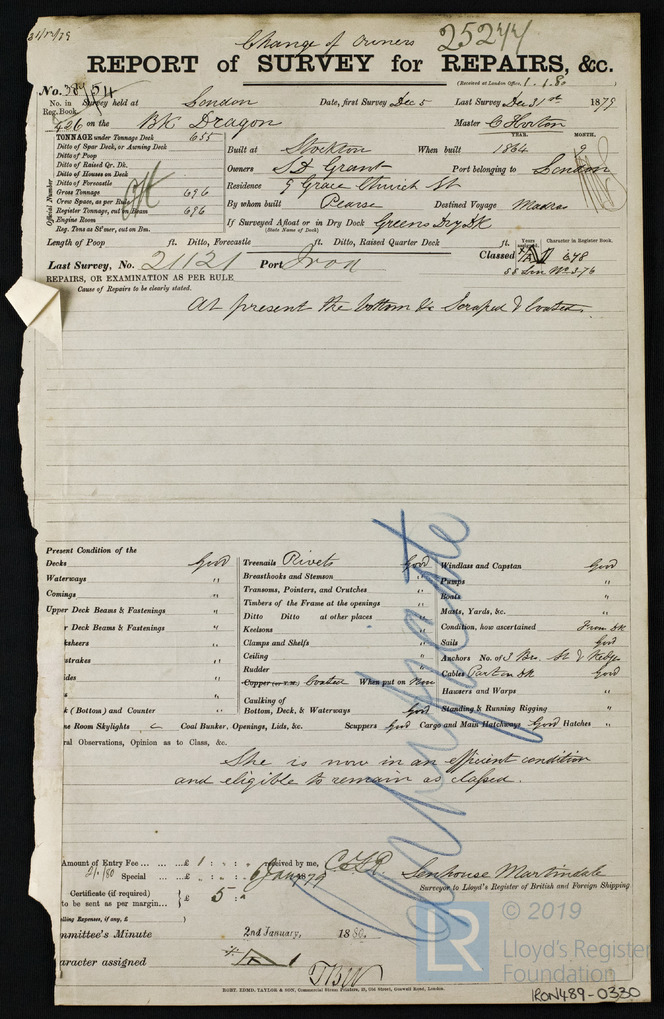 31/12/79
Change of Owners 25244
REPORT of SURVEY for REPAIRS, &c.
(Received at London Office, 1.1.80 )
No. in Survey held at London Date, first Survey Dec 5 Last Survey Dec 31st 1879
Reg. Book.
926 on the BK Dragon Master C Horton
TONNAGE under Tonnage Deck 655
Ditto of Spar Deck, or Awning Deck
Ditto of Poop
Ditto of Raised Qr. Dk.
Ditto of Houses on Deck
Ditto of Forecastle
Gross Tonnage 696
Crew Space, as per Rule
Register Tonnage, cut on Beam 696
Engine Room
Reg. Tons as St'mer, cut on Bm.
Official Number
YEAR. MONTH.
Built at Stockton When built 1864 9
Owners S D Grant Port belonging to London
Residence 9 Grace Church St
By whom built Pearse Destined Voyage Madras
If Surveyed Afloat or in Dry Dock Greens Dry Dk
(State Name of Dock)
Length of Poop ft. Ditto, Forecastle ft. Ditto, Raised Quarter Deck ft.
Years assigned. Character in Register Book.
Last Survey, No. 21121 Port Iron Classed A 1 6,78
SS Lon No.3-76
REPAIRS, OR EXAMINATION AS PER RULE
Cause of Repairs to be clearly stated.
At present the bottom &c Scraped & Coated.
Present Condition of the
Decks Good
Waterways "
Comings "
Upper Deck Beams & Fastenings "
r Deck Beams & Fastenings "
ksheers "
strakes "
ides "
k (Bottom) and Counter "
Treenails Rivets Good
Breasthooks and Stemson "
Transoms, Pointers, and Crutches "
Timbers of the Frame at the openings "
Ditto Ditto at other places "
Keelsons "
Clamps and Shelfs "
Ceiling "
Rudder "
Copper (or Y.M.) Coated When put on Now
Caulking of
Bottom, Deck, & Waterways Good
Windlass and Capstan Good
Pumps "
Boats "
Masts, Yards, &c. "
Condition, how ascertained From Dk
Sails Good
Anchors No. of 3 Br. St & Kedge
Cables Part on Dk Good
Hawsers and Warps "
Standing & Running Rigging "
ne Room Skylights Coal Bunker, Openings, Lids, &c. Scuppers Good Cargo and Main Hatchways Good Hatches "
ral Observations, Opinion as to Class, &c.
She is now in an efficient condition
and eligible to remain as classed.
Amount of Entry Fee ... £ 1 : " : " received by me,
Special ... £ " : " : " 6 Jany 1879
Senhouse Martindale
Surveyor to Lloyd's Register of British and Foreign Shipping
Certificate (if required)
to be sent as per margin... £ 5 :
elling Expenses, if any, £ )
mmittee's Minute 2nd January, 1880.
aracter assigned A 1
ROBT. EDMD. TAYLOR & SON, Commercial Steam Printers, 19, Old Street, Goswell Road, London.
© 2019
LR Lloyd's Register
Foundation
IRON489-0330